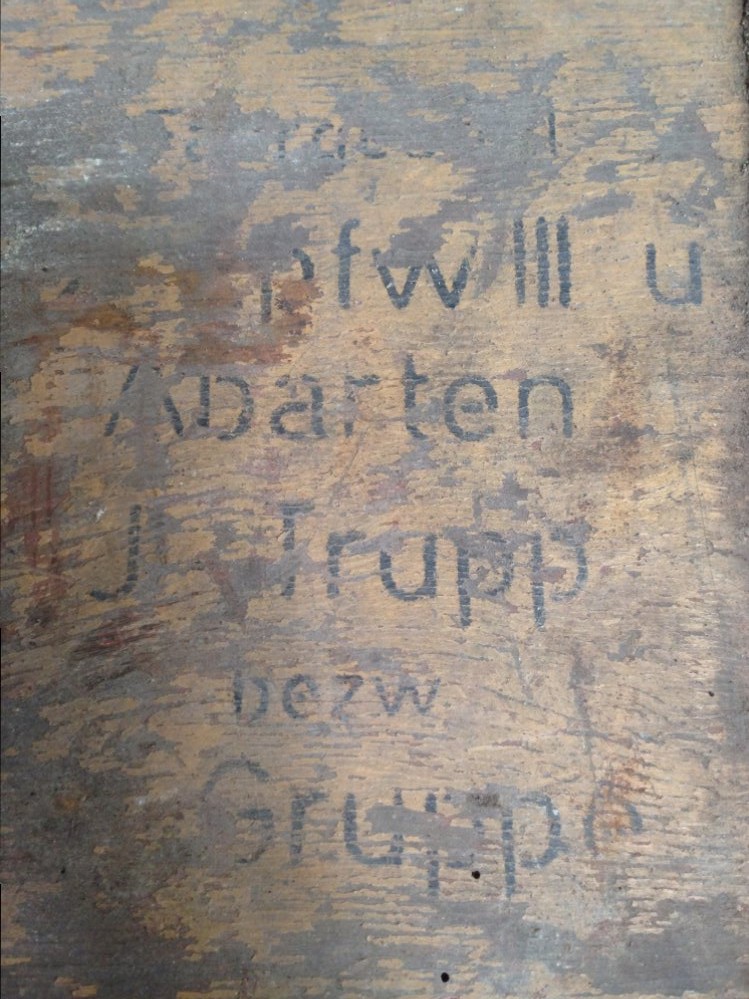 pfw III u
Abarten
J Trupp
bezw
Gruppe